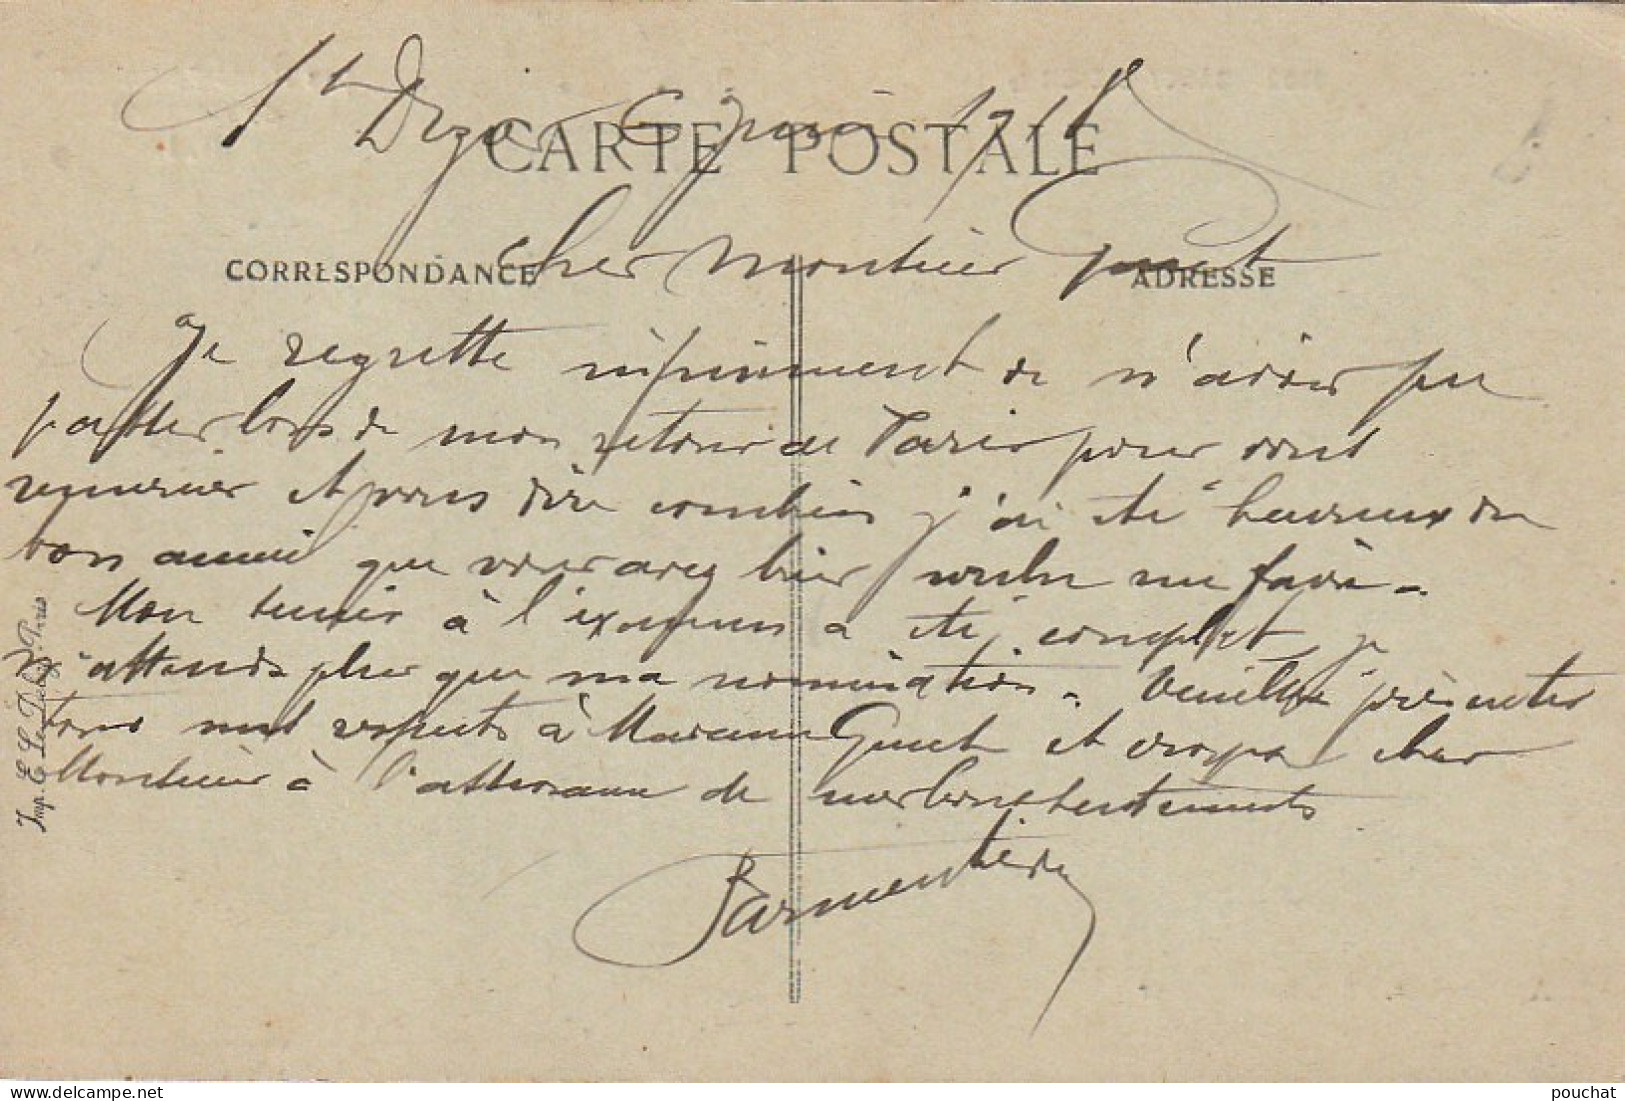 St Dizier 6 juin 1918
CARTE POSTALE
CORRESPONDANCE
ADRESSE
Cher Monsieur Guet
Je regrette infiniment de n'avoir pu
passer lors de mon retour de Paris pour vous
remercier et vous dire combien j'ai été heureux du
bon accueil que vous avez bien voulu me faire.
Mon succès à l'examen a été complet, je
n'attends plus que ma nomination. Veuillez présenter
tous mes respects à Madame Guet et croyez cher
Monsieur à l'assurance de mes bons sentiments
Parmentier
Imp. E. Le Deley. Paris
pouchat